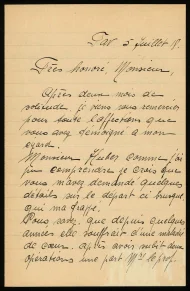 5 juillet 19
Très honoré, Monsieur,
Après deux mois de
solitude, je viens vous remercier
pour toute l'affection que
vous avez témoigné a mon
égard.
Monsieur Huber comme j'ai
pu comprendre je crois que
vous m'avez demandé quelques
détails sur le départ si brusque
qui m'a frapé.
Vous savez, que depuis quelques
année elle souffrait d'une maladie
de cœur. Après avoir subit deux
opérations une part Mr le prof.